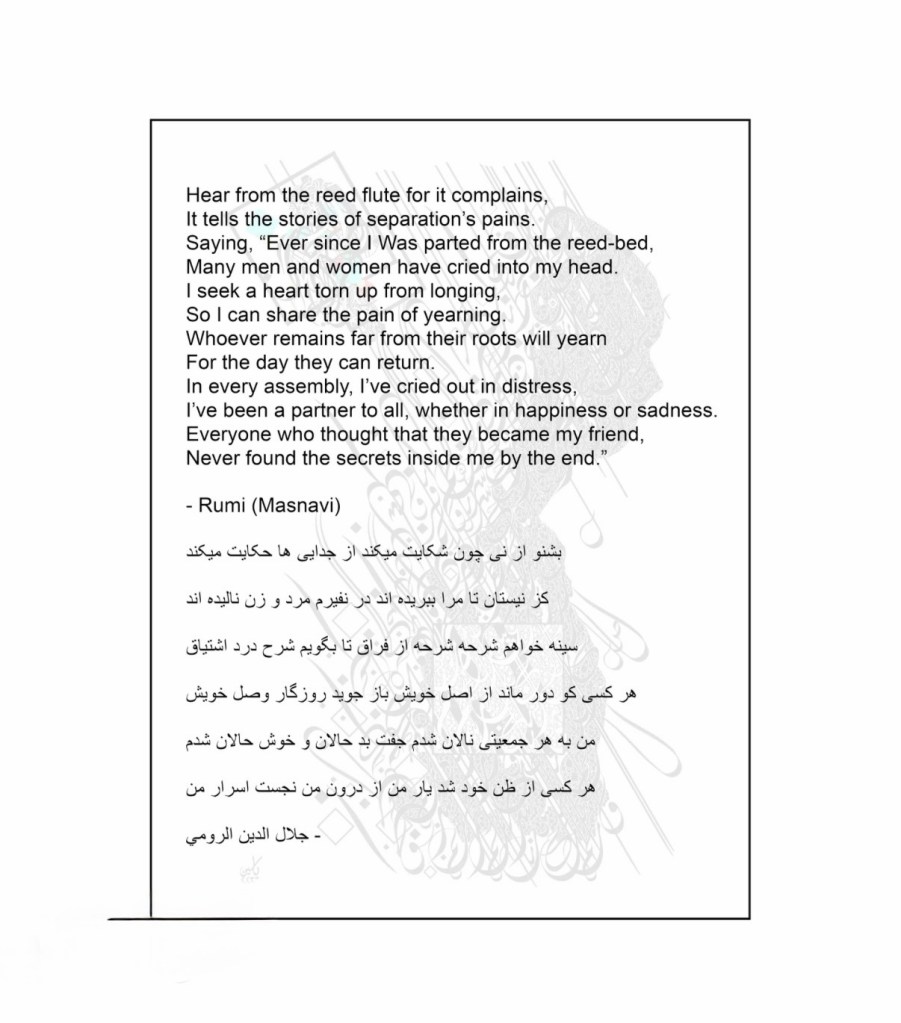 Hear from the reed flute for it complains,
It tells the stories of separation’s pains.
Saying, “Ever since I Was parted from the reed-bed,
Many men and women have cried into my head.
I seek a heart torn up from longing,
So I can share the pain of yearning.
Whoever remains far from their roots will yearn
For the day they can return.
In every assembly, I’ve cried out in distress,
I’ve been a partner to all, whether in happiness or sadness.
Everyone who thought that they became my friend,
Never found the secrets inside me by the end.”
- Rumi (Masnavi)
بشنو از نی چون شکایت میکند از جدایی ها حکایت میکند
کز نیستان تا مرا ببریده اند در نفیرم مرد و زن نالیده اند
سینه خواهم شرحه شرحه از فراق تا بگویم شرح درد اشتیاق
هر کسی کو دور ماند از اصل خویش باز جوید روزگار وصل خویش
من به هر جمعیتی نالان شدم جفت بد حالان و خوش حالان شدم
هر کسی از ظن خود شد یار من از درون من نجست اسرار من
- جلال الدين الرومي